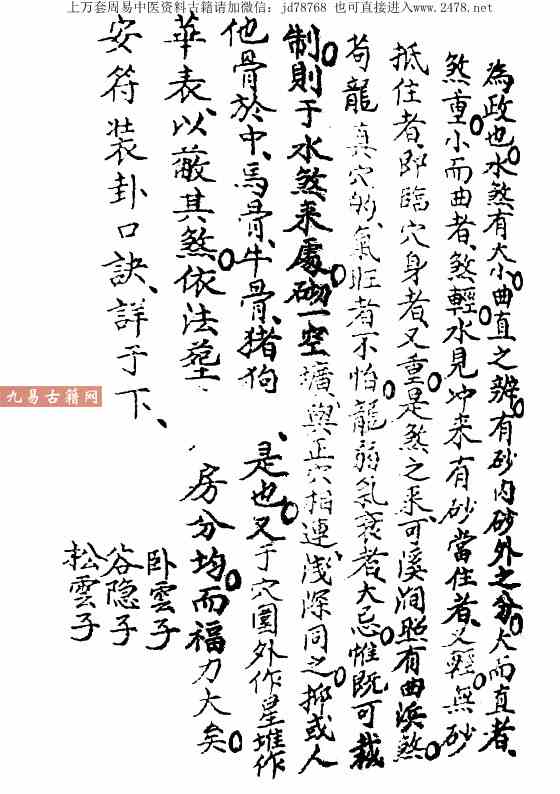 上万套周易中医资料古籍请加微信：jd78768 也可直接进入www.2478.net
為政也。水煞有大小曲直之辨。有砂内砂外之分。大而直者、
煞重。小而曲者、煞輕。水見冲来有砂當住者、又輕。無砂
抵住者、即臨穴身者、又重。是煞之来、可溪澗明有曲浜煞。
苟龍真穴的、氣旺者不怕。龍弱氣衰者、大忌。惟既可裁
制則于水煞来處、砌一空壙、與正穴相連、浅深同之。抑或人
他骨於中、馬骨、牛骨、猪狗、是也。又于穴圍外作星堆作
華表、以蔽其煞。依法塟
房分均。而福力大矣。
安符装卦口訣、詳于下、
卧雲子
谷隐子
松雲子
九易古籍网